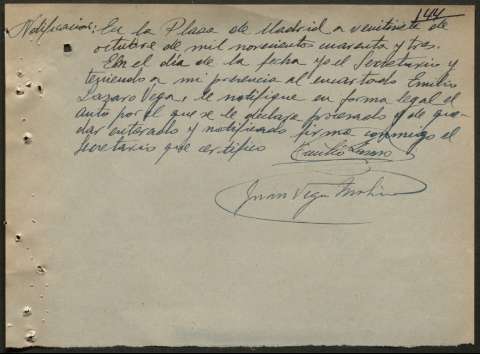 144
Notificacion: En la Plaza de Madrid a veintisiete de
octubre de mil novecientos cuarenta y tres.
En el dia de la fecha yo el Secretario y
teniendo a mi presencia al encartado Emilio
Lazaro Vega, le notifique en forma legal el
auto por el que se le declara procesado y de que-
dar enterado y notificado firma conmigo el
Secretario que certifico
Emilio Lazaro
Juan Vega